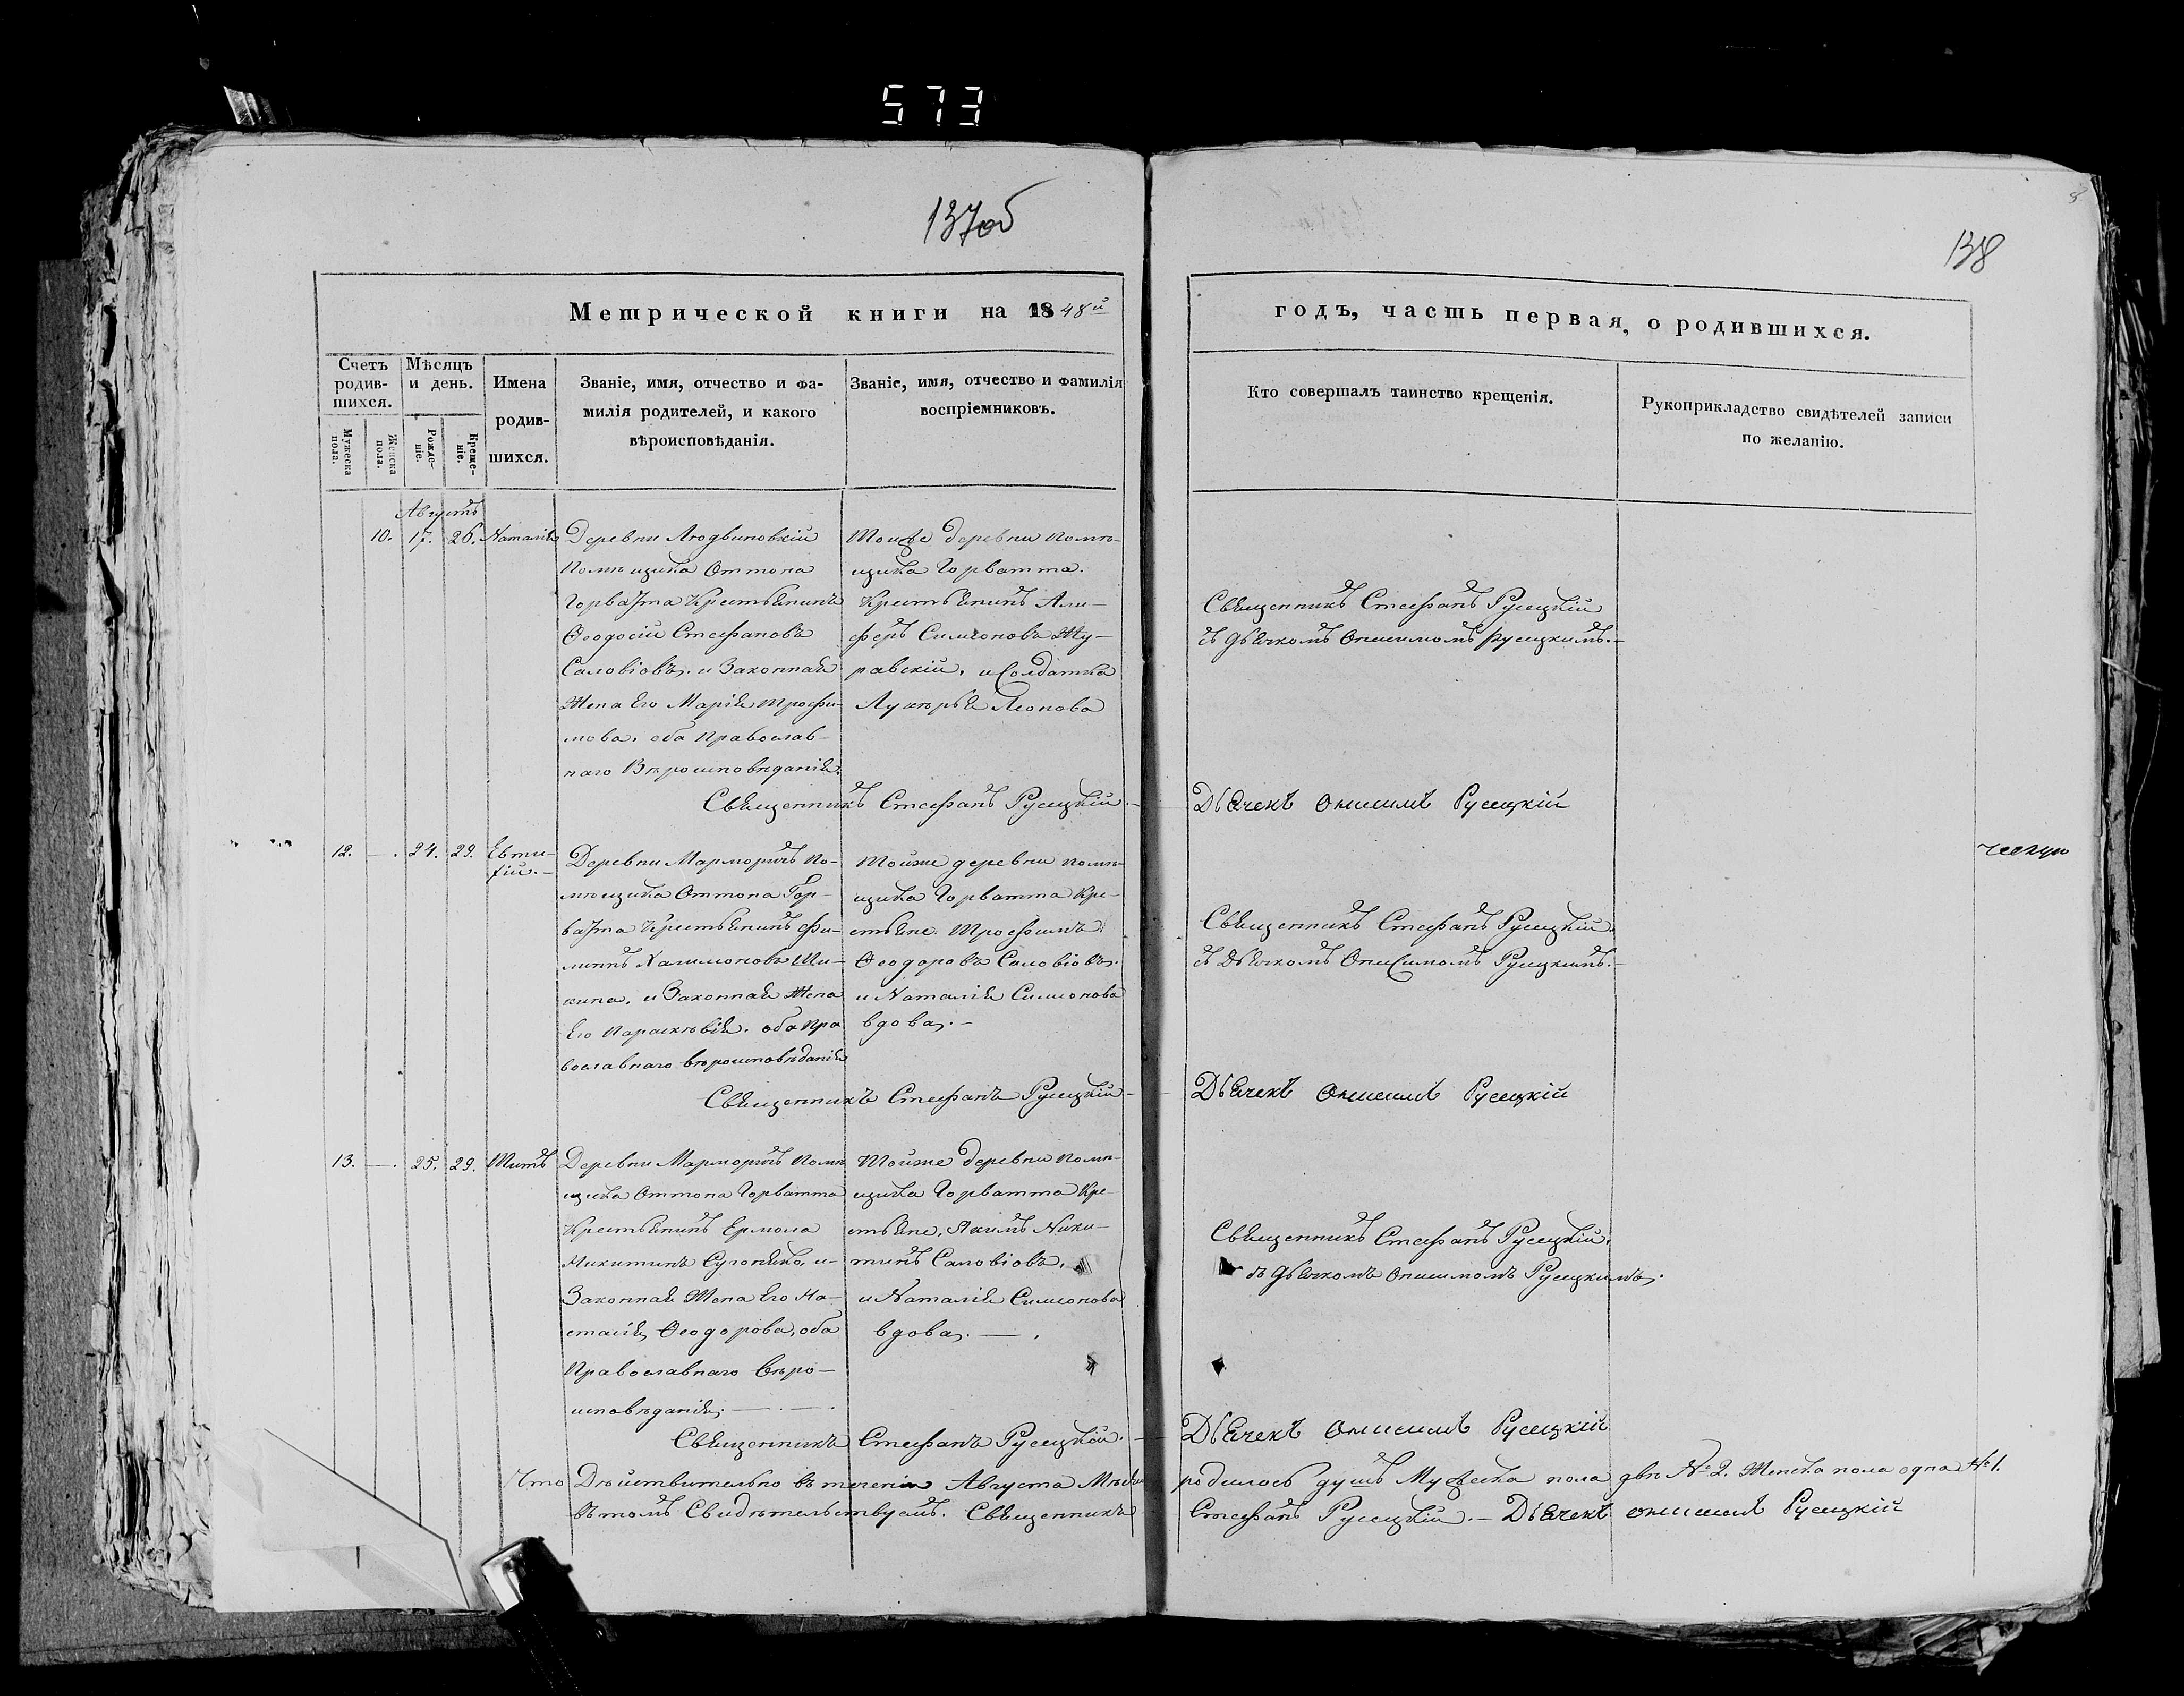 573
137об
138
Метрической книги на 1848й
годъ, часть первая, о родившихся.
Счетъ родив-шихся.
Мѣсяцъ и день.
Имена родив-шихся.
Званіе, имя, отчество и фа-
милія родителей, и какого
вѣроисповѣданія.
Званіе, имя, отчество и фамилія
воспріемниковъ.
Кто совершалъ таинство крещенія.
Рукоприкладство свидѣтелей записи
по желанію.
Мужеска пола.
Женска пола.
Рожде-ніе.
Креще-ніе.
Августъ
10. 17. 26. Наталія
Деревни Людвиновкій
Помѣщика Оттона
Горватта Крестьянинъ
Ѳеодосій Стефановъ
Саловіовъ. и Законная
Жена Его Марія Трофи-
мова, оба Православ-
наго Вѣроисповѣданія.
Тойже деревни помѣ-
щика Горватта.
Крестьянинъ Али-
феръ Симеоновъ Жу-
равскій, и Солдатка
Лукерья Леонова
Священникъ Стефанъ Русецкій
съ дьячкомъ Онисимомъ Русецкимъ.-
Священникъ Стефанъ Русецкій.-
Дьячекъ Онисимъ Русецкій
12. — . 24. 29. Евти-
хій.-
Деревни Марморичъ по-
мѣщика Оттона Гор-
ватта Крестьянинъ Фи-
липпъ Халимоновъ Ши-
кина, и Законная Жена
Его Параскѣвія. оба Пра
вославнаго вѣроисповѣданія
Тойже деревни помѣ-
щика Горватта Кре-
стьяне. Трофимъ
Ѳеодоровъ Саловіовъ.
и Наталія Симеонова
вдова.-
Священникъ Стефанъ Русецкій.
съ Дьячкомъ Онисимомъ Русецкимъ.-
Священникъ Стефанъ Русецкій-
Дьячекъ Онисимъ Русецкій
13. — . 25. 29. Титъ
Деревни Марморичъ помѣ
щика Оттона Горватта
Крестьянинъ Ермола
Никитинъ Сугоняко, и-
Законная Жена Его На-
стасія Ѳеодорова, оба
Православнаго вѣро-
исповѣданія.
Тойже деревни помѣ-
щика Горватта Кре-
стьяне, Якимъ Ники-
тинъ Саловіовъ,
и Наталія Симеонова
вдова. — .
Священникъ Стефанъ Русецкій.
съ дьячкомъ Онисимомъ Русецкимъ.
Священникъ Стефанъ Русецкій.-
Дьячекъ Онисимъ Русецкій
Что Дѣйствительно въ теченіи Августа Мѣсяца родилось душъ Мужеска пола двѣ № 2. Женска пола одна № 1.
Въ томъ Свидѣтельствуемъ. Священникъ Стефанъ Русецкій.- Дьячекъ Онисимъ Русецкій